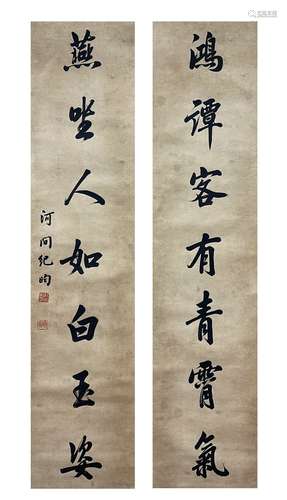 鴻譚客有青霄氣
燕坐人如白玉姿
河间纪昀